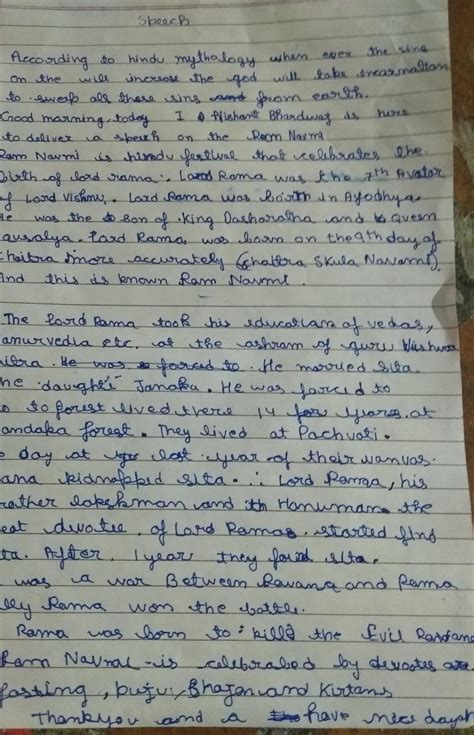 Speech
According to hindu mythology when ever the sins
on the will increase the god will take incarnation
to sweep all these sins from earth.
Good morning, today I Nishant Bhardwaj is here
to deliver a speech on the Ram Navmi
Ram Navmi is hindu festival that celebrates the
birth of lord rama. Lord Rama was the 7th Avatar
of Lord Vishnu. Lord Rama was borth in Ayodhya.
He was the son of King Dasharatha and Queen
ausalya. Lord Rama was born on the 9th day of
chaitra more accurately (Chaitra Skula Navami).
And this is known Ram Navmi.
The lord Rama took his education of vedas,
anurvedia etc. at the ashram of guru Vishwa
mitra. He was forced to. He married Sita.
he daught's Janaka. He was forced to
to forest lived there 14 years at
andaka forest. They lived at Pachvati.
e day at last year of their wanvas.
ana kidnapped sita. ∴ Lord Rama, his
rather lakshman and Hanuman the
eat devotie of Lord Ramas started find
ta. After 1 year they found sita.
was a war Between Ravana and Rama
lly Rama won the battle.
Rama was born to killd the Evil
Ram Navmi is celebrated by devotes
fasting, puju, Bhajan and Kirtans
Thankyou and a have nice dayah